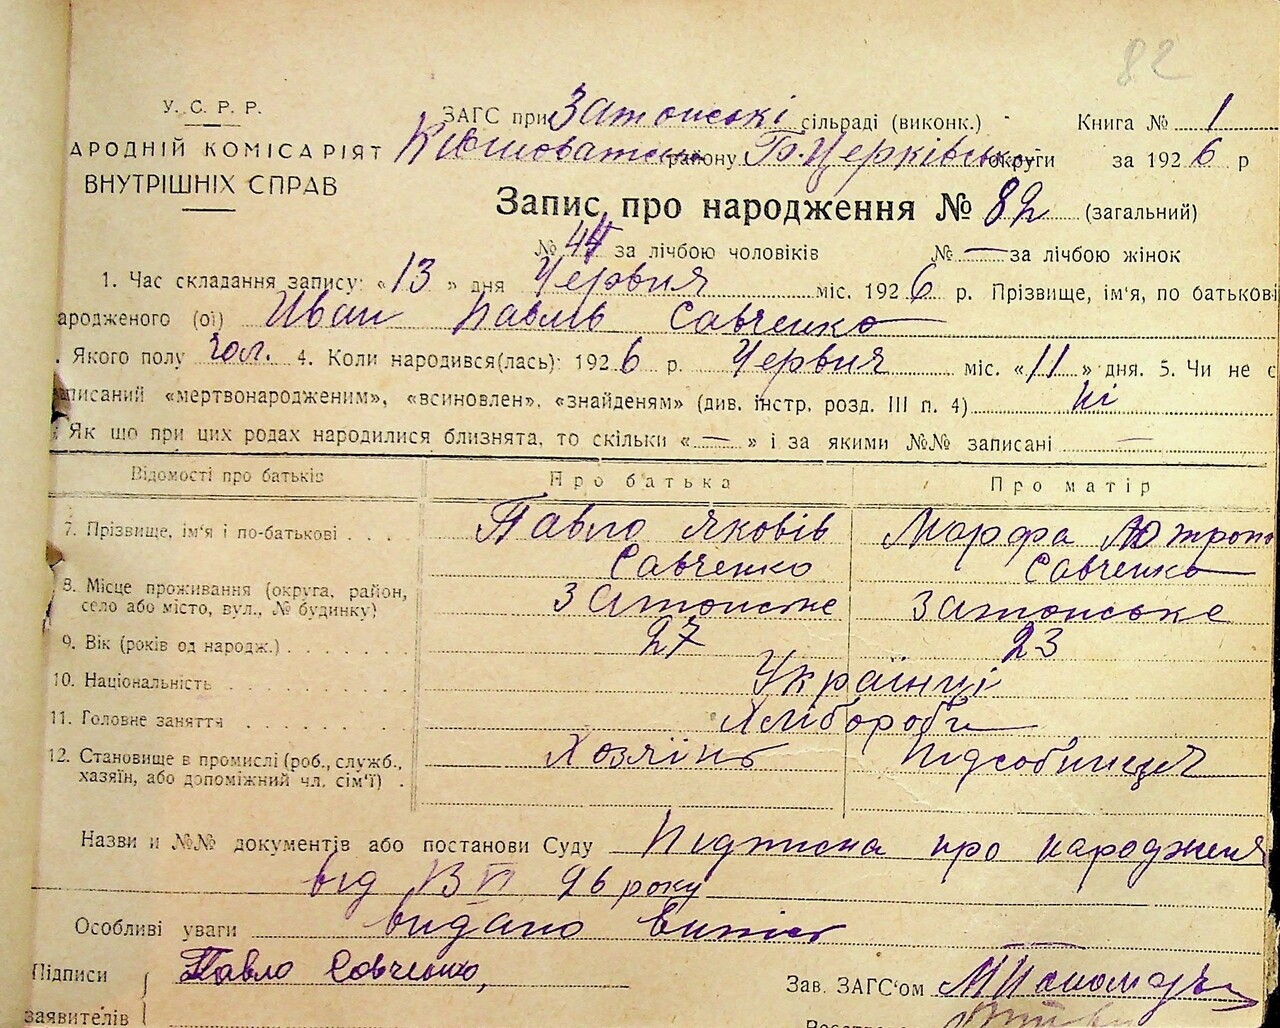 82
У. С. Р. Р.
АРОДНІЙ КОМІСАРІЯТ
ВНУТРІШНІХ СПРАВ
ЗАГС при Затонські сільраді (виконк.) Книга № 1
району Б.Церківсько округи за 1926 р
Запис про народження № 82 (загальний)
№ 44 за лічбою чоловіків № — за лічбою жінок
1. Час складання запису: «13» дня Червня міс. 1926 р. Прізвище, ім'я, по батькові
ародженого (ої) Иван Павлів Савченко
. Якого полу чол. 4. Коли народився(лась): 1926 р. Червня міс. «11» дня. 5. Чи не є
записаний «мертвонародженим», «всиновлен», «знайденям» (див. інстр. розд. III п. 4) ні
Як що при цих родах народилися близнята, то скільки «—» і за якими №№ записані —
Відомості про батьків Про батька Про матір
7. Прізвище, ім'я і по-батькові . . . . Павло Яковів Савченко Марфа Савченко
8. Місце проживання (округа, район, село або місто, вул., № будинку) Затонське Затонське
9. Вік (років од народж.) . . . . . . . 27 23
10. Національність . . . . . . . . . . Українці
11. Головне заняття . . . . . . . . . Хлібороби
12. Становище в промислі (роб., служб., хазяїн, або допоміжний чл. сім'ї) . Хозяїнь Підсобниця
Назви и №№ документів або постанови Суду Підписка про народження
від 13 VI 26 року
Особливі уваги видано випись
Підписи Павло Савченко, Зав. ЗАГС'ом М Пономарь
заявителів